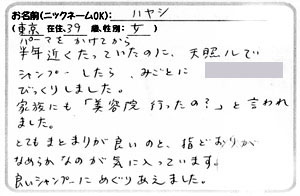 お名前(ニックネームOK): ハヤシ
(東京 在住、39 歳、性別: 女 )
パーマをかけてから
半年近くたっていたのに、天照ルで
シャンプーしたら、みごとに
びっくりしました。
家族にも「美容院 行ったの?」と言われ
ました。
とてもまとまりが良いのと、指どおりが
なめらかなのが気に入っています。
良いシャンプーにめぐりあえました。